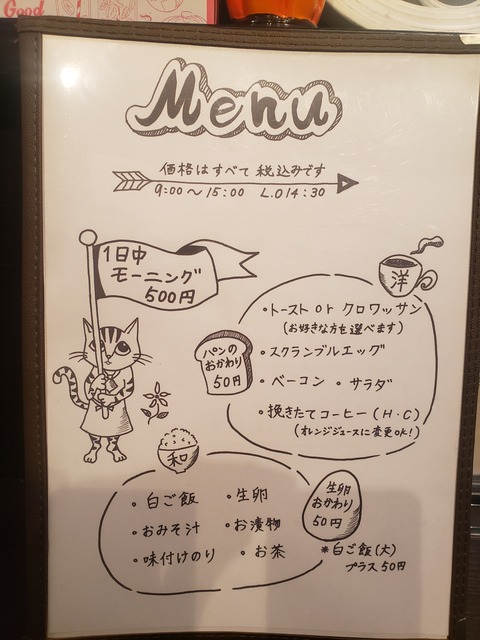 Good
Menu
価格はすべて税込みです
9:00〜15:00 L.O14:30
1日中
モーニング
500円
洋
・トースト or クロワッサン
(お好きな方を選べます)
・スクランブルエッグ
・ベーコン ・サラダ
・挽きたてコーヒー(H・C)
(オレンジジュースに変更OK!)
パンの
おかわり
50円
和
・白ご飯 ・生卵
・おみそ汁 ・お漬物
・味付けのり ・お茶
生卵
おかわり
50円
*白ご飯(大)
プラス50円